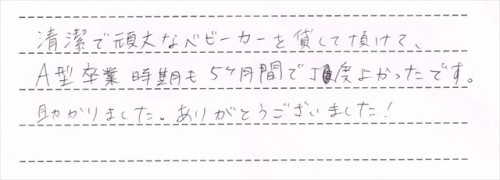 清潔で頑丈なベビーカーを貸して頂けて、
A型卒業時期も5ヶ月間で丁度よかったです。
助かりました。ありがとうございました!